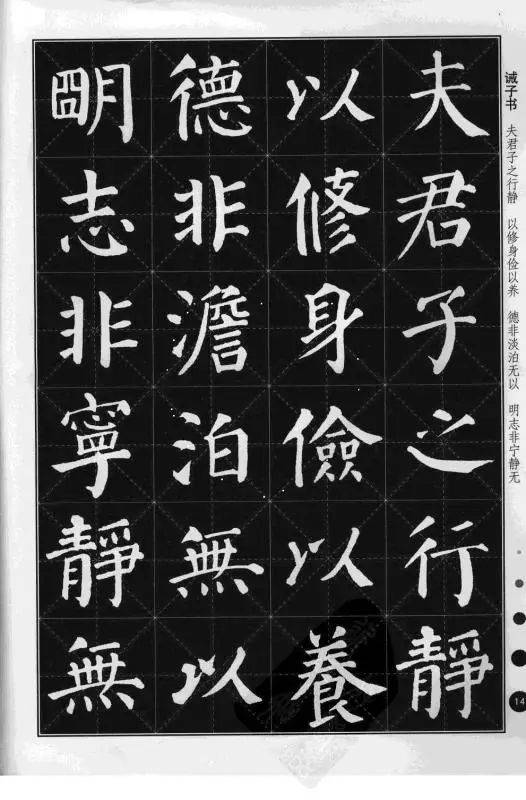 诫子书
夫君子之行静 以修身俭以养 德非淡泊无以 明志非宁静无
夫君子之行靜
以修身儉以養
德非澹泊無以
明志非寧靜無
14